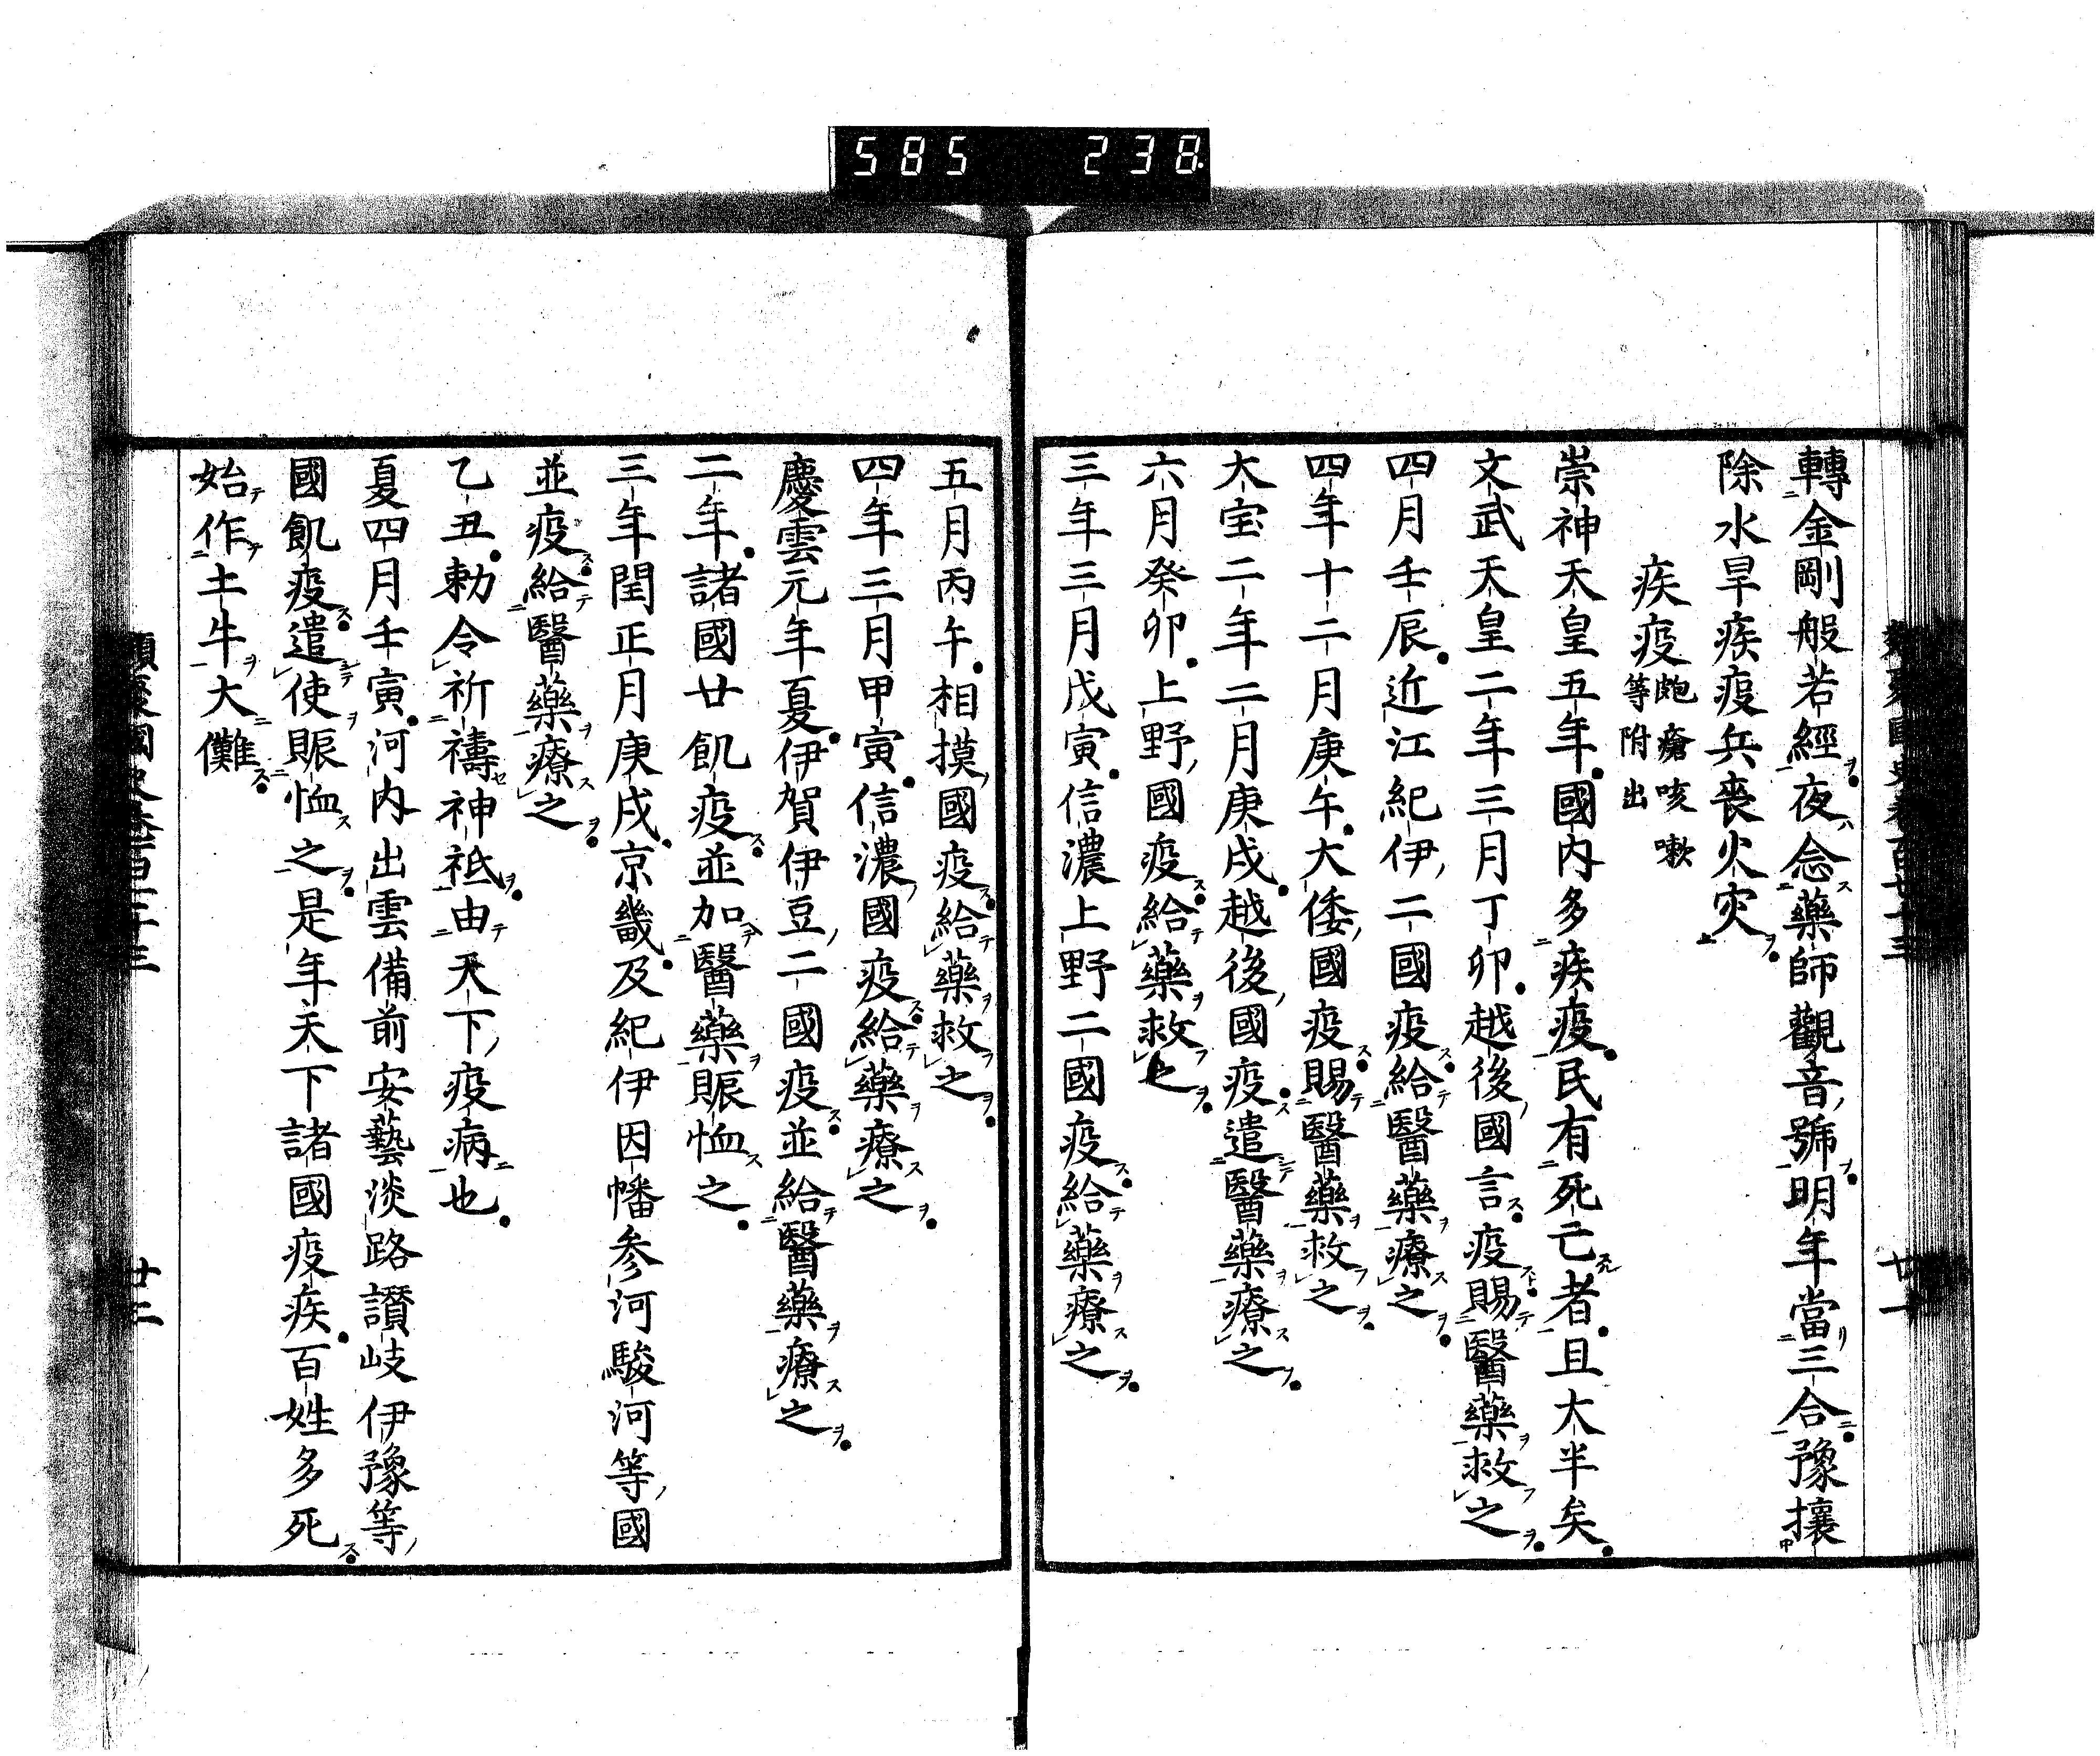 585 238
轉金剛般若經夜念藥師觀音號明年當三合豫攘
除水旱疾疫兵喪火灾
疾疫皰瘡咳嗽
等附出
崇神天皇五年國内多疾疫民有死亡者且大半矣
文武天皇二年三月丁卯越後國言疫賜醫藥救之
四月壬辰近江紀伊二國疫給醫藥療之
四年十二月庚午大倭國疫賜醫藥救之
大宝二年二月庚戌越後國疫遣醫藥療之
六月癸卯上野國疫給藥救之
三年三月戊寅信濃上野二國疫給藥療之
五月丙午相摸國疫給藥救之
四年三月甲寅信濃國疫給藥療之
慶雲元年夏伊賀伊豆二國疫並給醫藥療之
二年諸國廿飢疫並加醫藥賑恤之
三年閏正月庚戌京畿及紀伊因幡参河駿河等國
並疫給醫藥療之
乙丑勅令祈禱神祗由天下疫病也
夏四月壬寅河内出雲備前安藝淡路讃岐伊豫等
國飢疫遣使賑恤之是年天下諸國疫疾百姓多死
始作土牛大儺